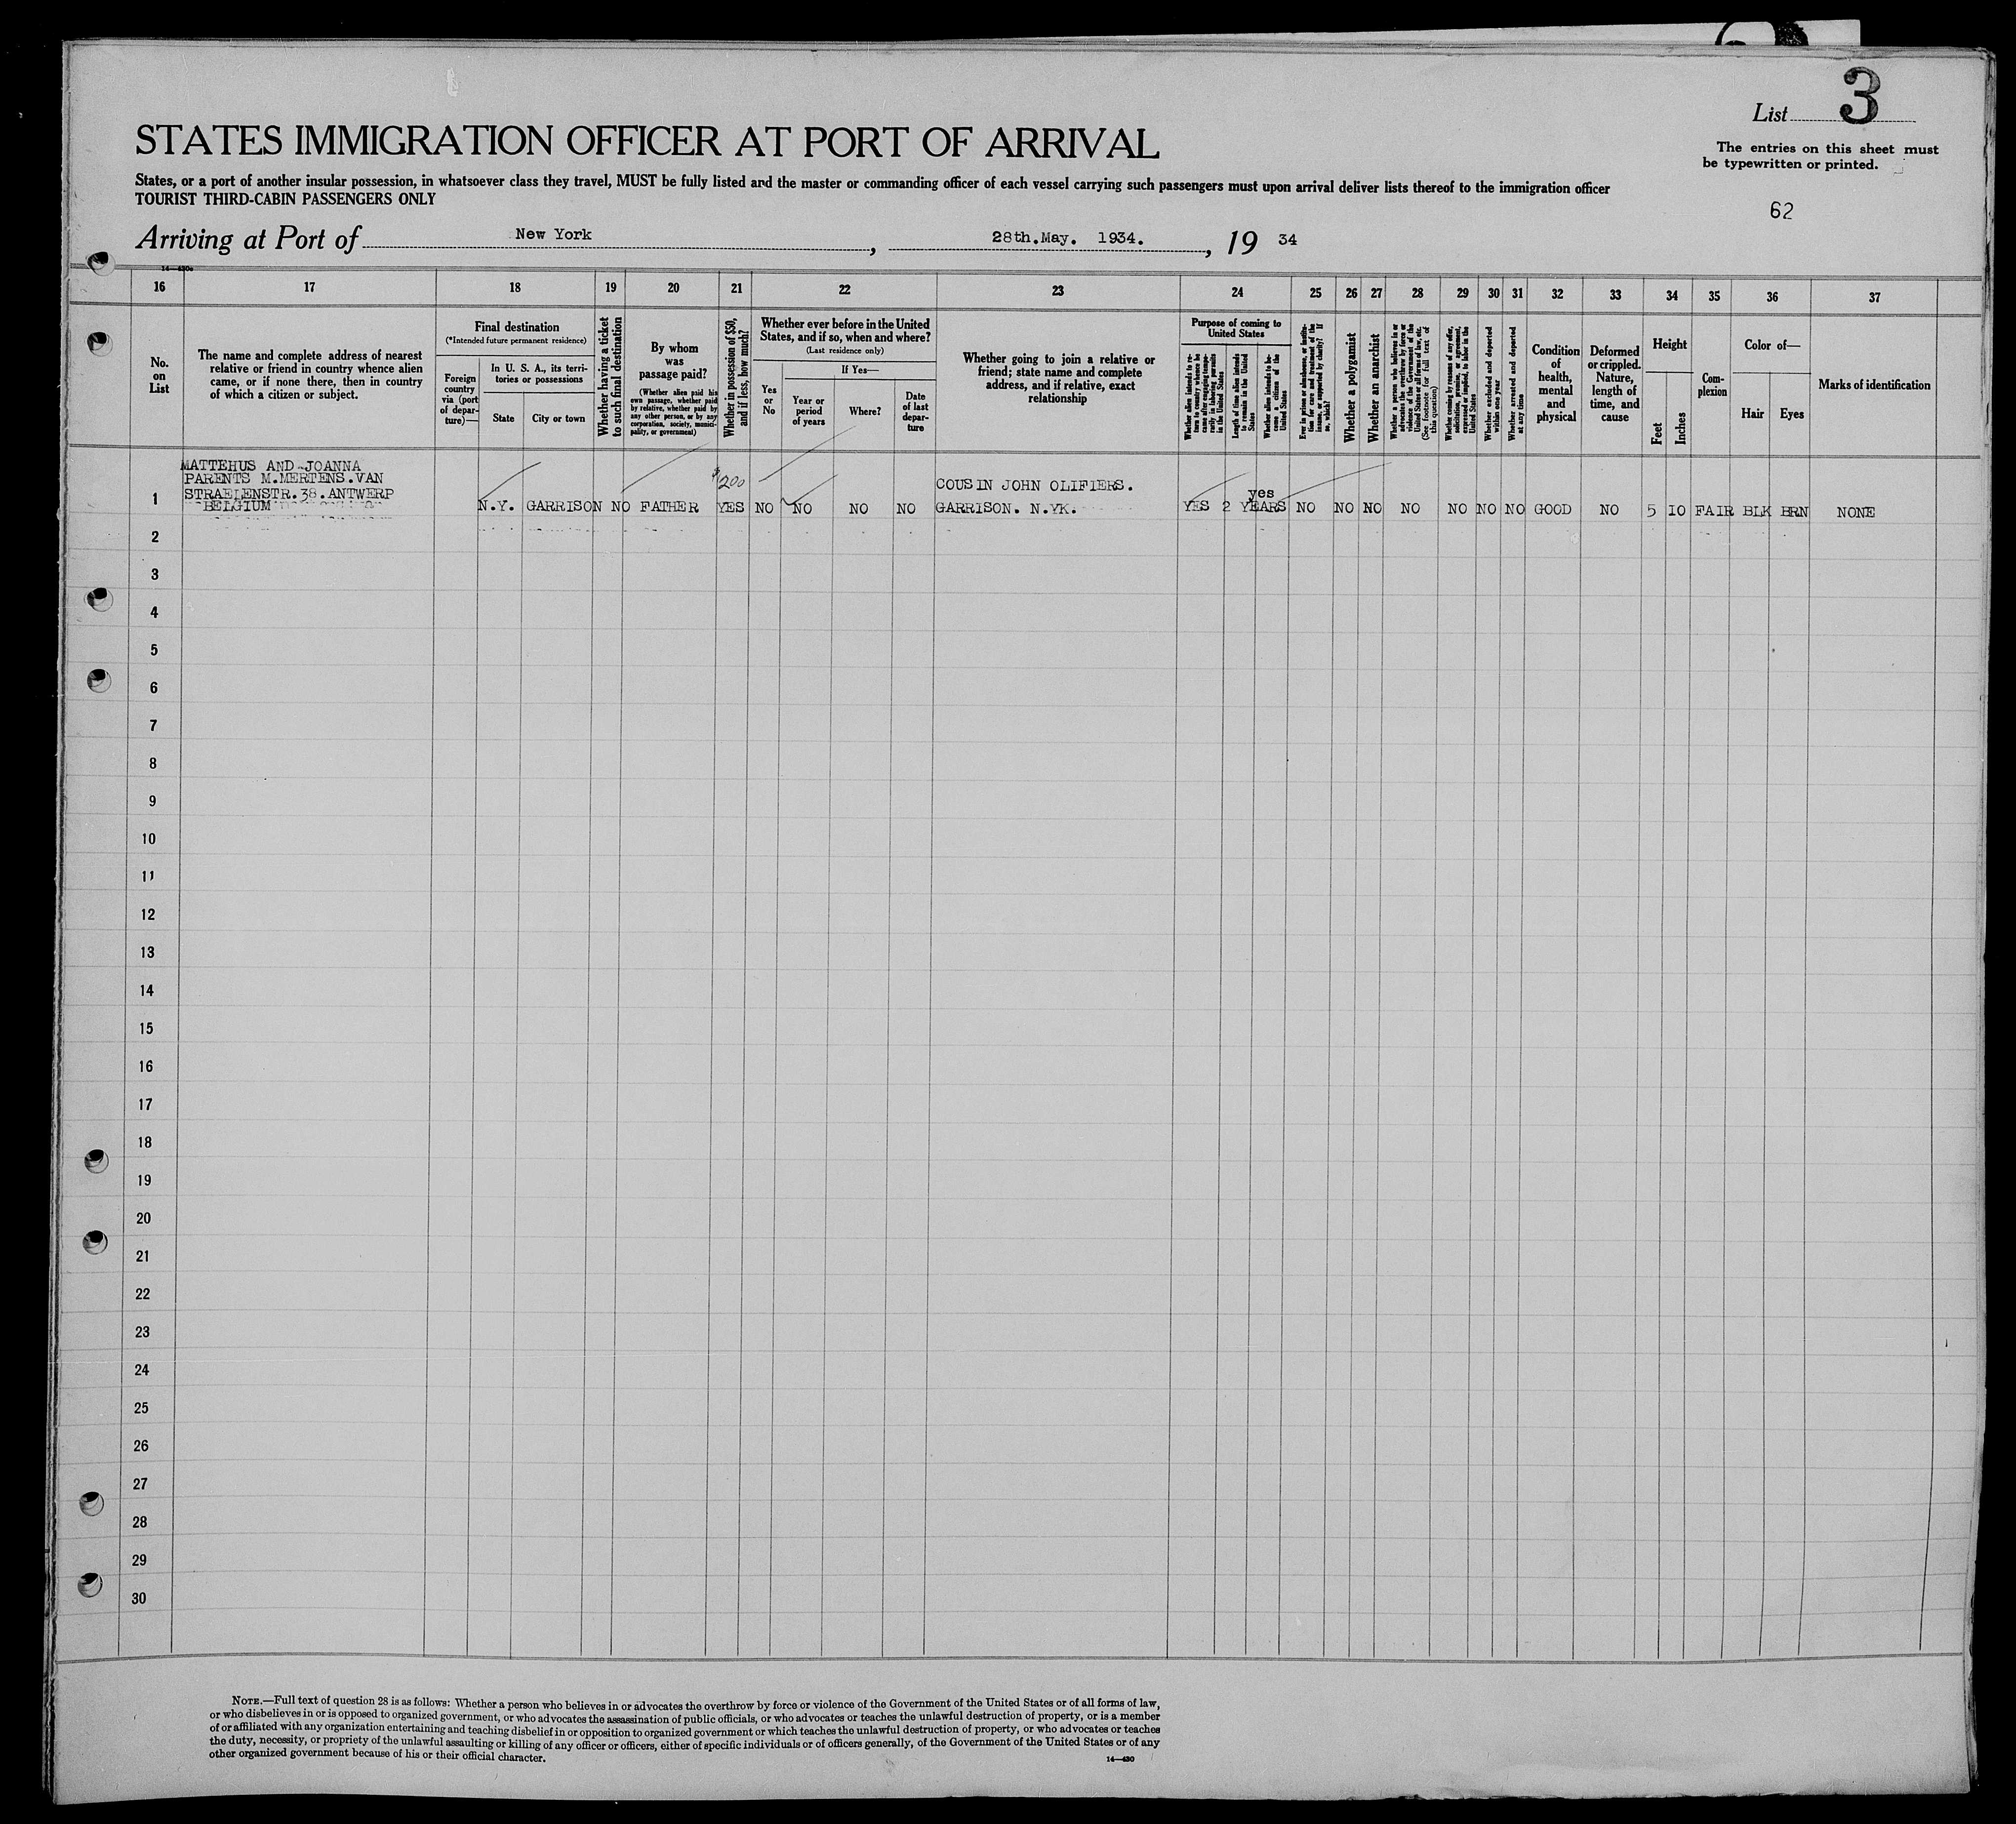 List 3
The entries on this sheet must
be typewritten or printed.
62
STATES IMMIGRATION OFFICER AT PORT OF ARRIVAL
States, or a port of another insular possession, in whatsoever class they travel, MUST be fully listed and the master or commanding officer of each vessel carrying such passengers must upon arrival deliver lists thereof to the immigration officer
TOURIST THIRD-CABIN PASSENGERS ONLY
Arriving at Port of New York, 28th.May. 1934., 19 34
14—430c
16 17 18 19 20 21 22 23 24 25 26 27 28 29 30 31 32 33 34 35 36 37
No.
on
List
The name and complete address of nearest
relative or friend in country whence alien
came, or if none there, then in country
of which a citizen or subject.
Final destination
(*Intended future permanent residence)
Foreign
country
via (port
of depar-
ture)—
In U. S. A., its terri-
tories or possessions
State
City or town
Whether having a ticket
to such final destination
By whom
was
passage paid?
(Whether alien paid his
own passage, whether paid
by relative, whether paid by
any other person, or by any
corporation, society, munici-
pality, or government)
Whether in possession of $50,
and if less, how much?
Whether ever before in the United
States, and if so, when and where?
(Last residence only)
Yes
or
No
If Yes—
Year or
period
of years
Where?
Date
of last
depar-
ture
Whether going to join a relative or
friend; state name and complete
address, and if relative, exact
relationship
Purpose of coming to
United States
Whether alien intends to re-
turn to country whence he
came after engaging tempo-
rarily in laboring pursuits
in the United States
Length of time alien intends
to remain in the United
States
Whether alien intends to be-
come a citizen of the
United States
Ever in prison or almshouse, or institu-
tion for care and treatment of the
insane, or supported by charity? If
so, which?
Whether a polygamist
Whether an anarchist
Whether a person who believes in or
advocates the overthrow by force or
violence of the Government of the
United States or all forms of law, etc.
(See footnote for full text of
this question)
Whether coming by reasons of any offer,
solicitation, promise, or agreement,
expressed or implied, to labor in the
United States
Whether excluded and deported
within one year
Whether arrested and deported
at any time
Condition
of
health,
mental
and
physical
Deformed
or crippled.
Nature,
length of
time, and
cause
Height
Feet
Inches
Com-
plexion
Color of—
Hair
Eyes
Marks of identification
MATTEHUS AND JOANNA
PARENTS M.MERTENS.VAN
STRAELENSTR.38.ANTWERP
BELGIUM
$200
COUSIN JOHN OLIFIERS.
yes
1 N.Y. GARRISON NO FATHER YES NO NO NO NO GARRISON. N.YK. YES 2 YEARS NO NO NO NO NO NO NO GOOD NO 5 10 FAIR BLK BRN NONE
2
3
4
5
6
7
8
9
10
11
12
13
14
15
16
17
18
19
20
21
22
23
24
25
26
27
28
29
30
NOTE.—Full text of question 28 is as follows: Whether a person who believes in or advocates the overthrow by force or violence of the Government of the United States or of all forms of law,
or who disbelieves in or is opposed to organized government, or who advocates the assassination of public officials, or who advocates or teaches the unlawful destruction of property, or is a member
of or affiliated with any organization entertaining and teaching disbelief in or opposition to organized government or which teaches the unlawful destruction of property, or who advocates or teaches
the duty, necessity, or propriety of the unlawful assaulting or killing of any officer or officers, either of specific individuals or of officers generally, of the Government of the United States or of any
other organized government because of his or their official character.
14—430